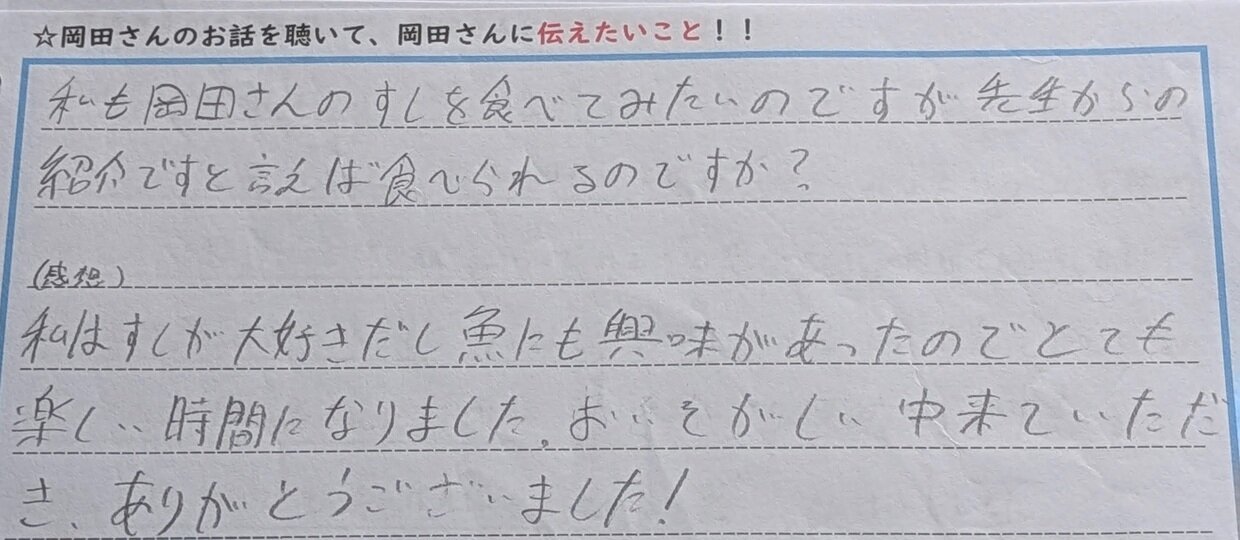 ☆岡田さんのお話を聴いて、岡田さんに伝えたいこと！！
私も岡田さんのすしを食べてみたいのですが先生からの
紹介ですと言えば食べられるのですか？
(感想)
私はすしが大好きだし魚にも興味があったのでとても
楽しい時間になりました。おいそがしい中来ていただ
き、ありがとうございました！